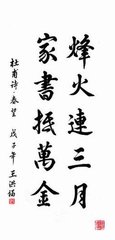 烽火連三月
家書抵萬金
杜甫诗·春望 戊子年 王洪锡